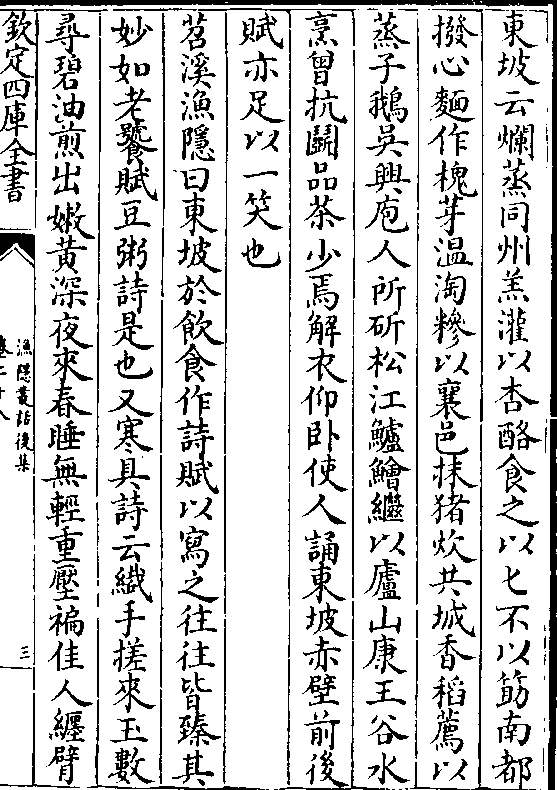 東坡云爛蒸同州羔灌以杏酪食之以匕不以筯南都
撥心麵作槐芽溫淘糝以襄邑抹猪炊共城香稻薦以
蒸子鵝吳興庖人所斫松江鱸鱠繼以廬山康王谷水
烹曾抗鬭品茶少焉解衣仰卧使人誦東坡赤壁前後
賦亦足以一笑也
苕溪漁隱曰東坡於飲食作詩賦以寫之往往皆臻其
妙如老饕賦豆粥詩是也又寒具詩云纎手搓來玉數
尋碧油煎出嫩黄深夜來春睡無輕重壓褊佳人纏臂
欽定四庫全書
漁隱叢話後集
卷二十八
三